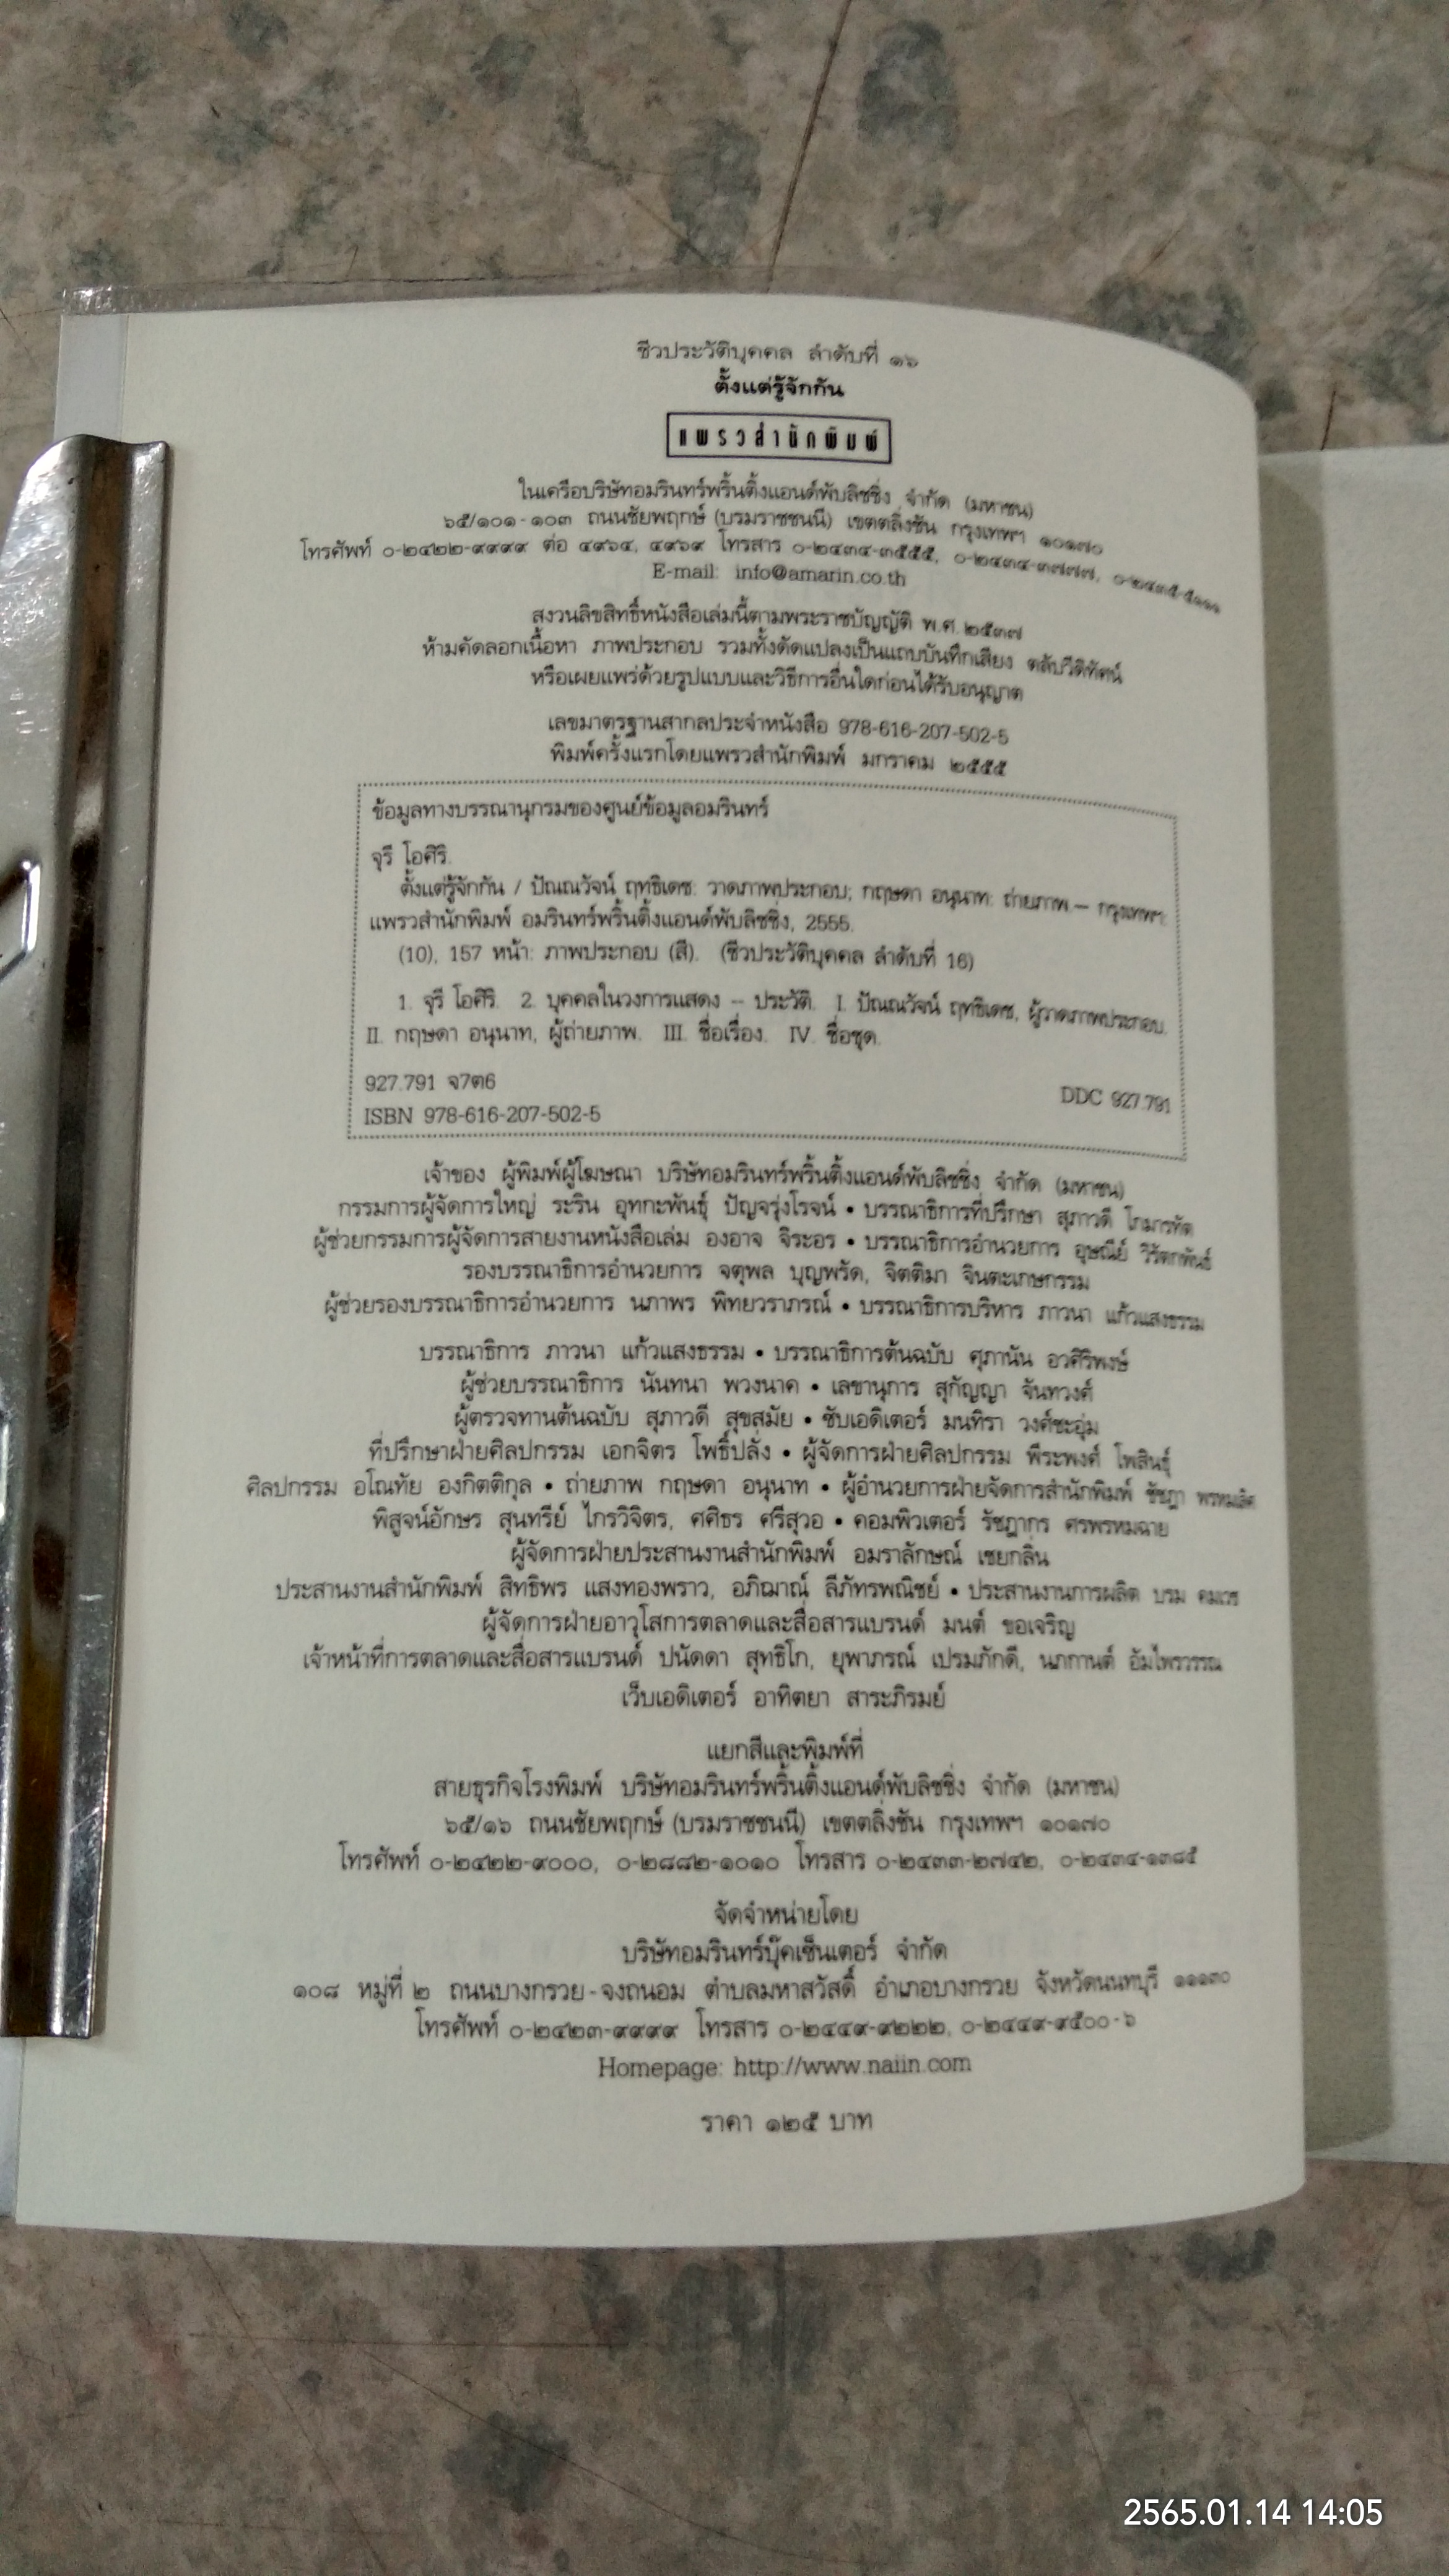 ชีวประวัติบุคคล ลำดับที่ ๑๖
ตั้งแต่รู้จักกัน
แพรวสำนักพิมพ์
ในเครือบริษัทอมรินทร์พริ้นติ้งแอนด์พับลิชชิ่ง จำกัด (มหาชน)
๖๕/๑๐๑-๑๐๓ ถนนชัยพฤกษ์ (บรมราชชนนี) เขตตลิ่งชัน กรุงเทพฯ ๑๐๑๗๐
โทรศัพท์ ๐-๒๔๒๒-๙๙๙๙ ต่อ ๔๙๖๔, ๔๙๖๙ โทรสาร ๐-๒๔๓๔-๓๕๕๕, ๐-๒๔๓๔-๓๗๗๗, ๐-๒๔๓๕-๕๑๑๑
E-mail: info@amarin.co.th
สงวนลิขสิทธิ์หนังสือเล่มนี้ตามพระราชบัญญัติ พ.ศ. ๒๕๓๗
ห้ามคัดลอกเนื้อหา ภาพประกอบ รวมทั้งดัดแปลงเป็นแถบบันทึกเสียง ตลับวีดิทัศน์
หรือเผยแพร่ด้วยรูปแบบและวิธีการอื่นใดก่อนได้รับอนุญาต
เลขมาตรฐานสากลประจำหนังสือ 978-616-207-502-5
พิมพ์ครั้งแรกโดยแพรวสำนักพิมพ์ มกราคม ๒๕๕๕
ข้อมูลทางบรรณานุกรมของศูนย์ข้อมูลอมรินทร์
จุรี โอศิริ.
ตั้งแต่รู้จักกัน / ปัณณวัจน์ ฤทธิเดช: วาดภาพประกอบ; กฤษดา อนุนาท: ถ่ายภาพ.– กรุงเทพฯ:
แพรวสำนักพิมพ์ อมรินทร์พริ้นติ้งแอนด์พับลิชชิ่ง, 2555.
(10), 157 หน้า: ภาพประกอบ (สี). (ชีวประวัติบุคคล ลำดับที่ 16)
1. จุรี โอศิริ. 2. บุคคลในวงการแสดง – ประวัติ. I. ปัณณวัจน์ ฤทธิเดช, ผู้วาดภาพประกอบ.
II. กฤษดา อนุนาท, ผู้ถ่ายภาพ. III. ชื่อเรื่อง. IV. ชื่อชุด.
927.791 จ7ต6
DDC 927.791
ISBN 978-616-207-502-5
เจ้าของ ผู้พิมพ์ผู้โฆษณา บริษัทอมรินทร์พริ้นติ้งแอนด์พับลิชชิ่ง จำกัด (มหาชน)
กรรมการผู้จัดการใหญ่ ระริน อุทกะพันธุ์ ปัญจรุ่งโรจน์ • บรรณาธิการที่ปรึกษา สุภาวดี โกมารทัต
ผู้ช่วยกรรมการผู้จัดการสายงานหนังสือเล่ม องอาจ จิระอร • บรรณาธิการอำนวยการ อุษณีย์ วิรัตกพันธ์
รองบรรณาธิการอำนวยการ จตุพล บุญพรัด, จิตติมา จินตะเกษกรรม
ผู้ช่วยรองบรรณาธิการอำนวยการ นภาพร พิทยวราภรณ์ • บรรณาธิการบริหาร ภาวนา แก้วแสงธรรม
บรรณาธิการ ภาวนา แก้วแสงธรรม • บรรณาธิการต้นฉบับ ศุภานัน อวศิริพงษ์
ผู้ช่วยบรรณาธิการ นันทนา พวงนาค • เลขานุการ สุกัญญา จันทวงศ์
ผู้ตรวจทานต้นฉบับ สุภาวดี สุขสมัย • ซับเอดิเตอร์ มนทิรา วงศ์ชะอุ่ม
ที่ปรึกษาฝ่ายศิลปกรรม เอกจิตร โพธิ์ปลั่ง • ผู้จัดการฝ่ายศิลปกรรม พีระพงศ์ โพสินธุ์
ศิลปกรรม อโณทัย องกิตติกุล • ถ่ายภาพ กฤษดา อนุนาท • ผู้อำนวยการฝ่ายจัดการสำนักพิมพ์
พิสูจน์อักษร สุนทรีย์ ไกรวิจิตร, ศศิธร ศรีสุวอ • คอมพิวเตอร์ รัชฎากร ศรพรหมฉาย
ผู้จัดการฝ่ายประสานงานสำนักพิมพ์ อมราลักษณ์ เชยกลิ่น
ประสานงานสำนักพิมพ์ สิทธิพร แสงทองพราว, อภิฌาณ์ ลีภัทรพณิชย์ • ประสานงานการผลิต บรม
ผู้จัดการฝ่ายอาวุโสการตลาดและสื่อสารแบรนด์ มนต์ ขอเจริญ
เจ้าหน้าที่การตลาดและสื่อสารแบรนด์ ปนัดดา สุทธิโก, ยุพาภรณ์ เปรมภักดี, นภกานต์ อัมไพรวรรณ
เว็บเอดิเตอร์ อาทิตยา สาระภิรมย์
แยกสีและพิมพ์ที่
สายธุรกิจโรงพิมพ์ บริษัทอมรินทร์พริ้นติ้งแอนด์พับลิชชิ่ง จำกัด (มหาชน)
๖๕/๑๖ ถนนชัยพฤกษ์ (บรมราชชนนี) เขตตลิ่งชัน กรุงเทพฯ ๑๐๑๗๐
โทรศัพท์ ๐-๒๔๒๒-๙๐๐๐, ๐-๒๘๘๒-๑๐๑๐ โทรสาร ๐-๒๔๓๓-๒๗๔๒, ๐-๒๔๓๔-๑๓๘๕
จัดจำหน่ายโดย
บริษัทอมรินทร์บุ๊คเซ็นเตอร์ จำกัด
๑๐๘ หมู่ที่ ๒ ถนนบางกรวย-จงถนอม ตำบลมหาสวัสดิ์ อำเภอบางกรวย จังหวัดนนทบุรี ๑๑๑๓๐
โทรศัพท์ ๐-๒๔๒๓-๙๙๙๙ โทรสาร ๐-๒๔๔๙-๙๒๒๒, ๐-๒๔๔๙-๙๕๐๐-๖
Homepage: http://www.naiin.com
ราคา ๑๒๕ บาท
2565.01.14 14:05